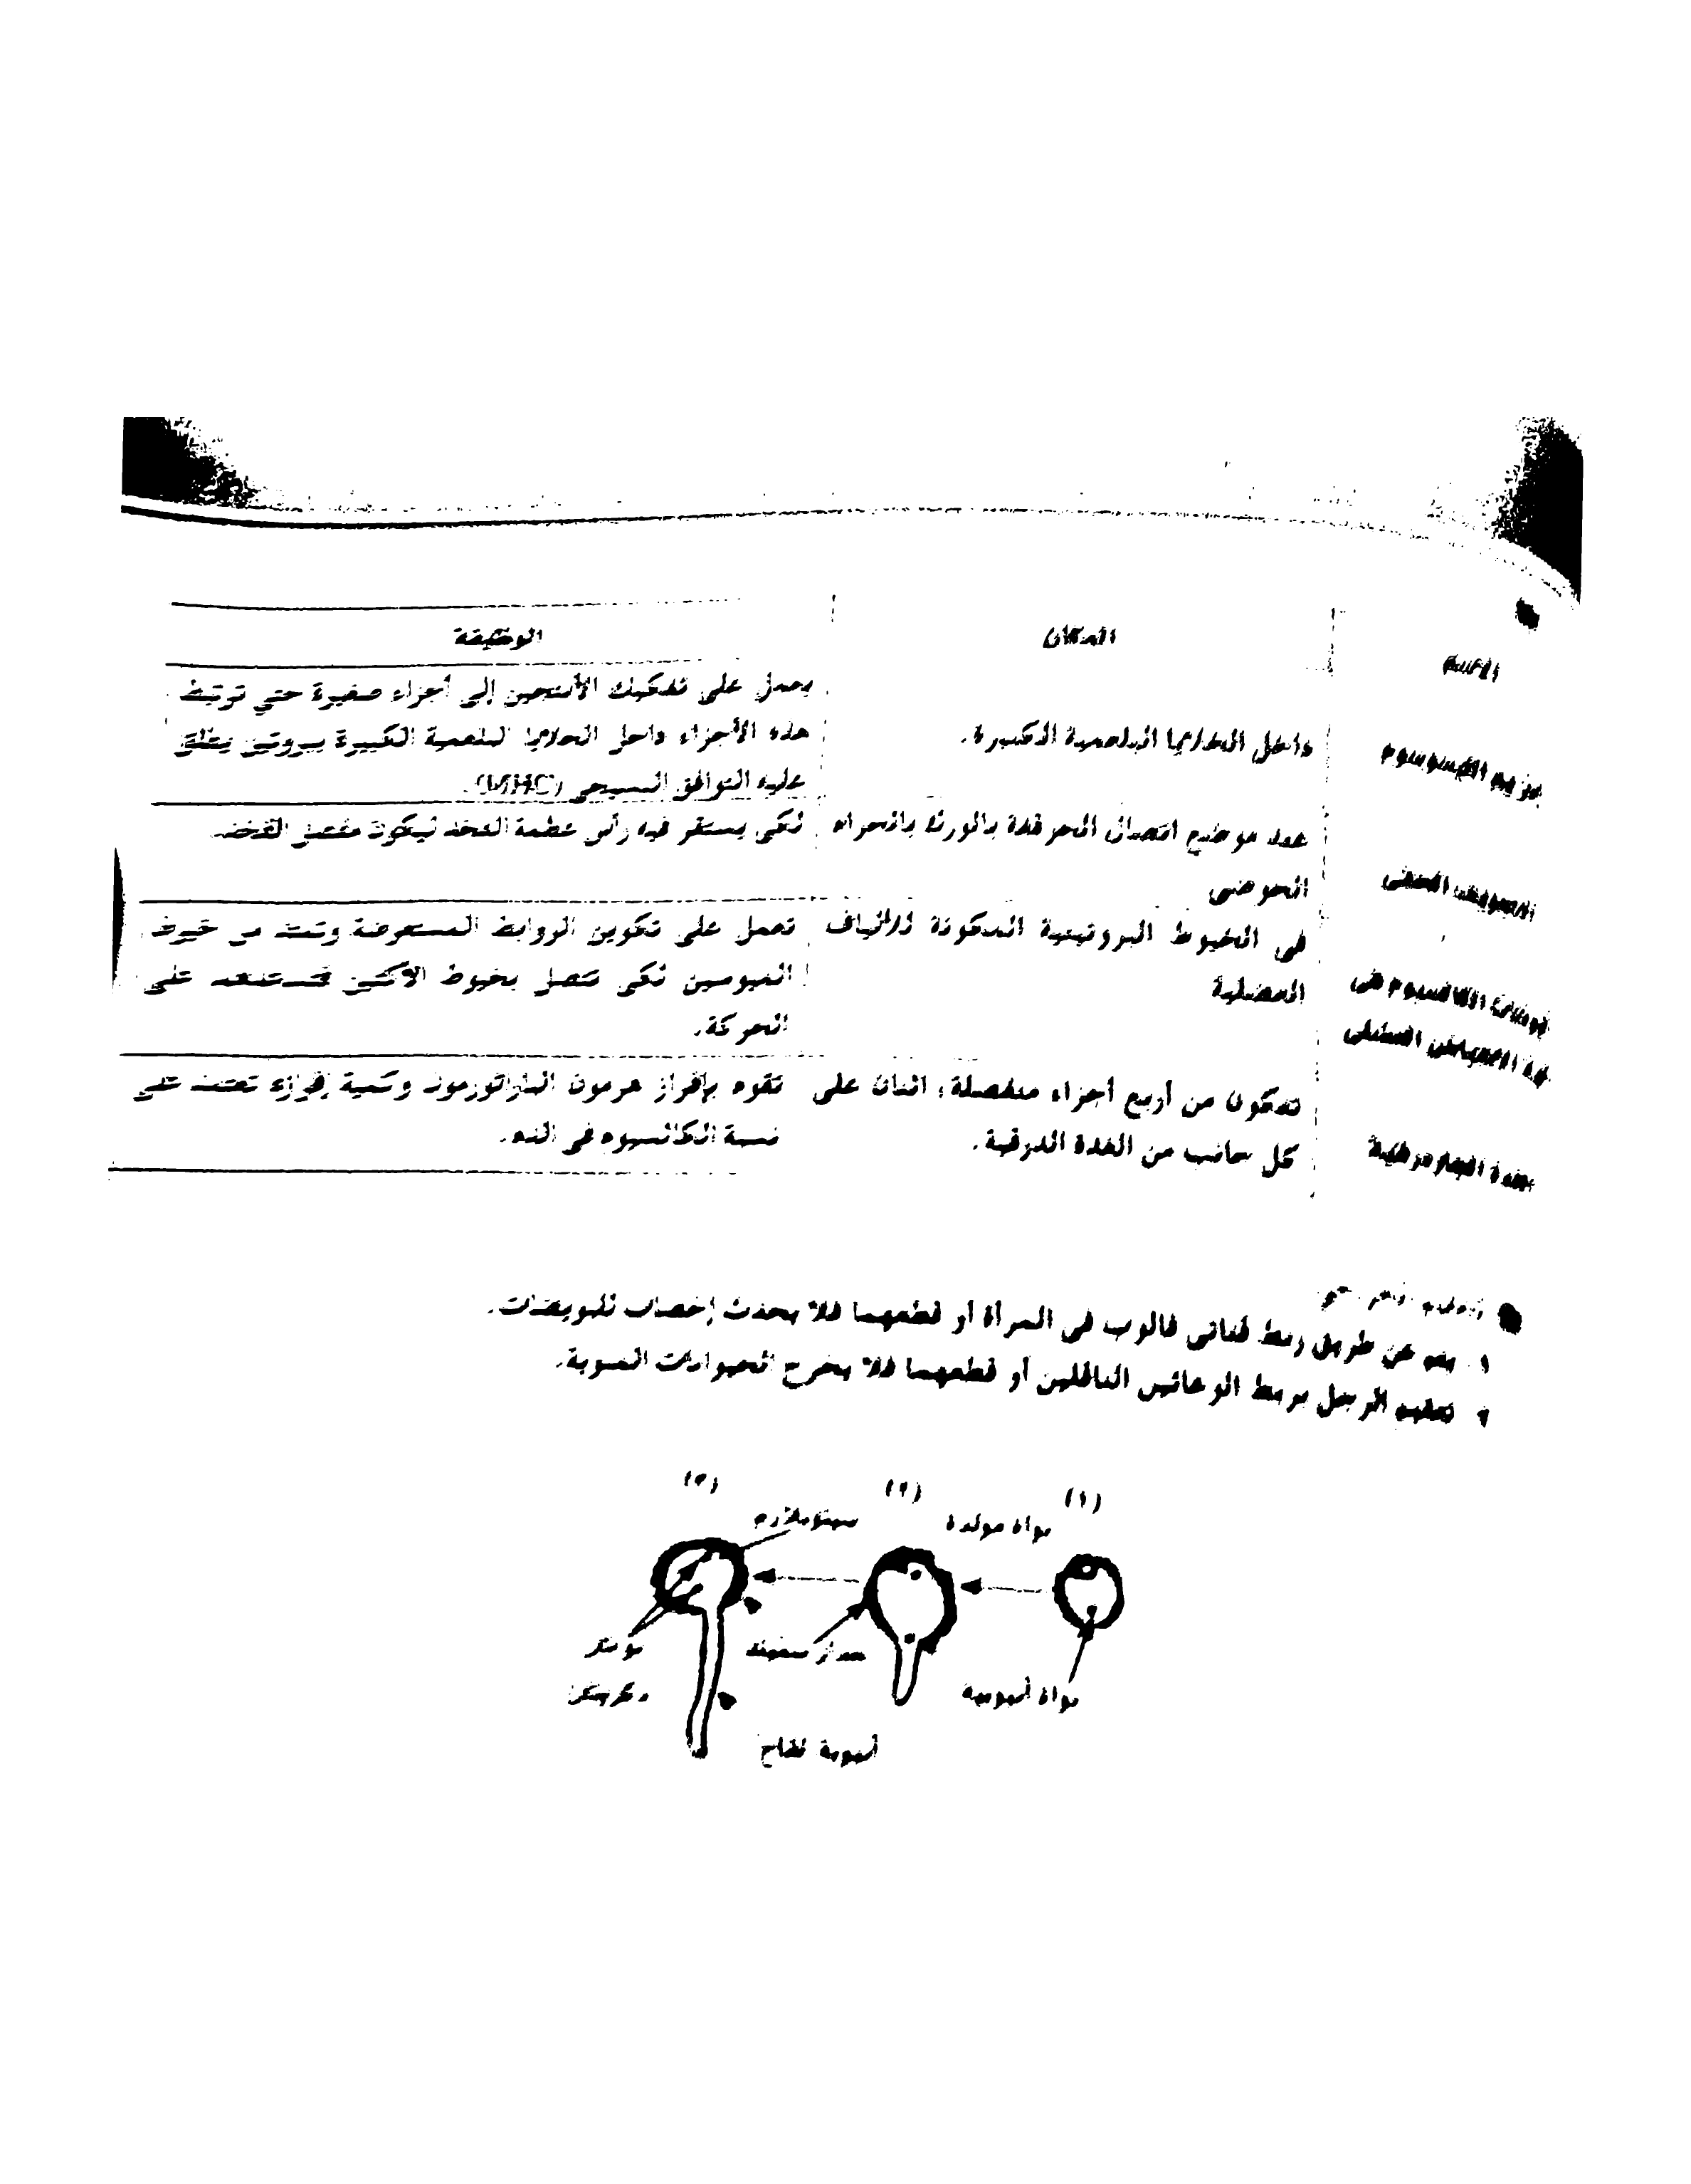 الاسم
المكان
الوظيفة
داخل الخلايا البلعمية الكبيرة.
يعمل على تفكيك الأنتجين إلى أجزاء صغيرة حتى ترتبط
هذه الأجزاء داخل الخلايا البلعمية الكبيرة ببروتين يطلق
عليه التوافق النسيجى (MHC).
التجويف الحقى
عند موضع اتصال الحرقفة بالورك بالحزام
الحوضى
لكى يستقر فيه رأس عظمة الفخذ ليكون مفصل الفخذ.
أيونات الكالسيوم فى
فى الخيوط البروتينية المكونة للألياف
العضلية
تعمل على تكوين الروابط المستعرضة وتمتد من خيوط
الميوسين لكى تتصل بخيوط الأكتين
الحركة.
تتكون من أربع أجزاء منفصلة، اثنان على
كل جانب من الغدة الدرقية.
تقوم بإفراز هرمون الباراثورمون وكمية إفرازه تعتمد على
نسبة الكالسيوم فى الدم.
١ يتم عن طريق ربط قناتى فالوب فى المرأة أو قطعهما فلا يحدث إخصاب للبويضات.
٢ تعقيم الرجل بربط الوعائين الناقلين أو قطعهما فلا يخرج الحيوانات المنوية.
(١) (٢) (٣)
نواة مولدة
سيتوبلازم
نواة أنبوبية
أنبوبة لقاح